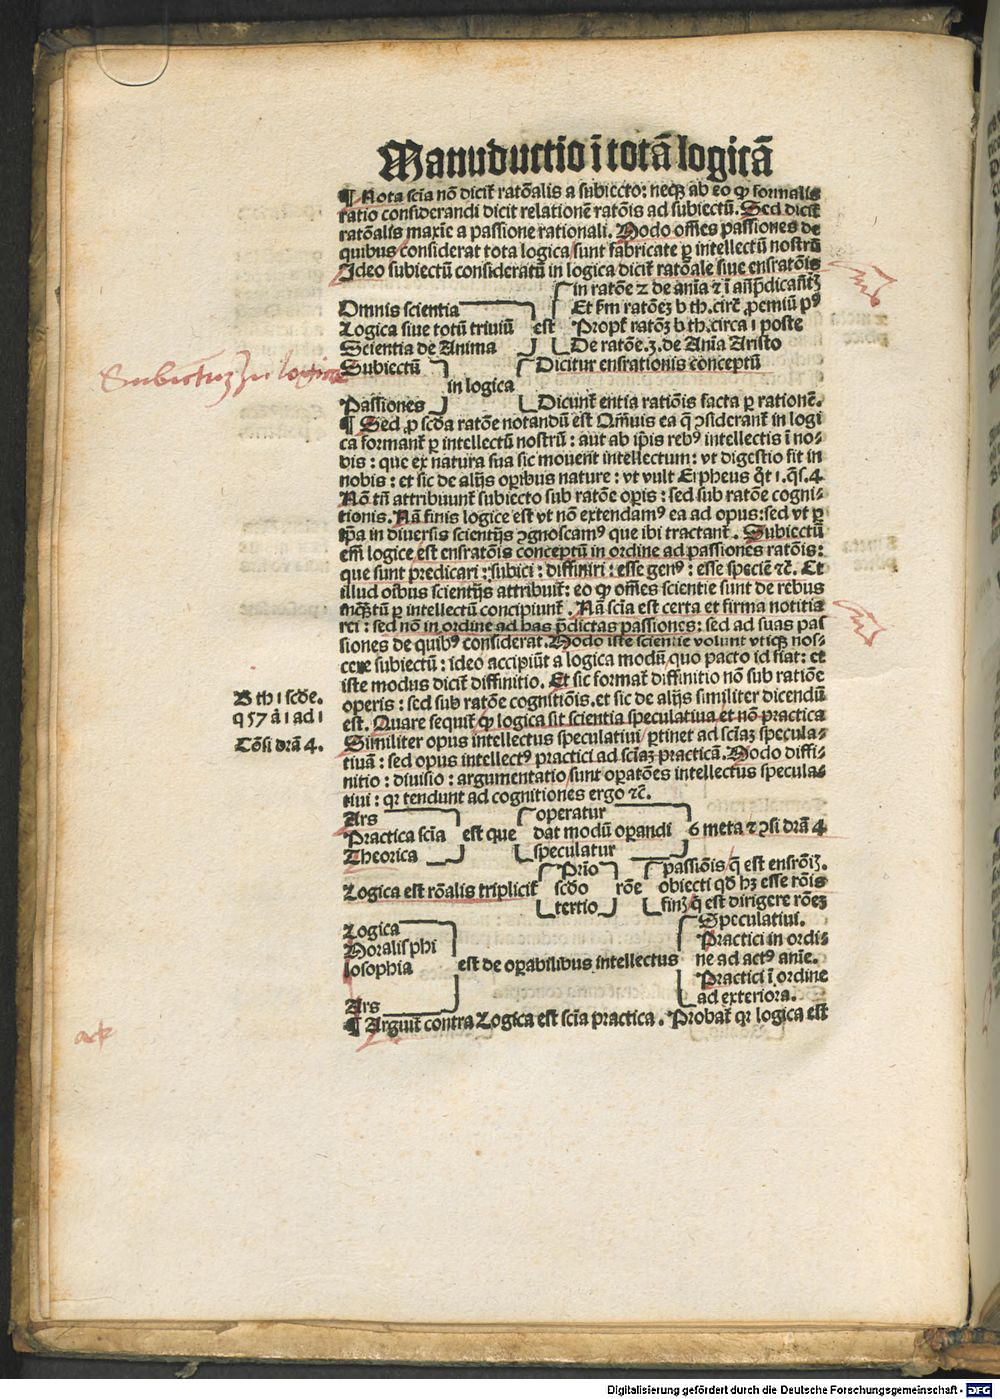 Manuductio ī totā logicā
¶ Nota sciā nō dicit̄ ratōalis a subiecto: neqȝ ab eo qꝫ formalis
ratio considerandi dicit relationē ratōis ad subiectū. Sed dicit̄
ratōalis maxīe a passione rationali. Modo oīnes passiones de
quibus / considerat tota logica / sunt fabricate ꝑ intellectū nostrū
Ideo subiectū consideratū in logica dicit̄ ratōale siue ensratōis
in ratōe ⁊ de anīa ⁊ ī
Omnis scientia
Logica siue totū triuiū est
Scientia de Anima
Propt̄ b th. circa 1 poste
De ratōe. 3. de Anīa Aristo
Subiectū Dicitur ensrationis conceptū
Subiectuȝ in logica
in logica
Passiones Dicunt̄ entia ratiōis facta ꝑ rationē.
¶ Sed ꝓ scd̄a ratōe notandū est Qm̄uis ea q̄ ꝯsiderant̄ in logi
ca formant̄ ꝑ intellectū nostrū: aut ab ip̄is rebꝰ intellectis ī no-
bis: que ex natura sua sic mouent intellectum: vt digestio fit in
nobis: et sic de alijs oꝑibus nature: vt vult Eipheus q̄t 1. qs̄. 4
Nō tn̄ attribuunt̄ subiecto sub ratōe oꝑis: sed sub ratōe cogni-
tionis. Nā finis logice est vt nō extendamꝰ ea ad opus: sed vt ꝑ
ip̄a in diuersis scientijs ꝯgnoscamꝰ que ibi tractant̄. Subiectū
em̄ logice est ensratōis conceptū in ordine ad passiones ratōis:
que sunt predicari: subici: diffiniri: esse genꝰ: esse speciē ⁊c̄. Et
illud oībus scientijs attribuit̄: eo qꝫ oīnes scientie sunt de rebus
inqȝtū ꝑ intellectū concipiunt̄. Nā sciā est certa et firma notitia
rei: sed nō in ordine ad has p̄dictas passiones: sed ad suas pas
siones de quibꝰ considerat. Modo iste scientie volunt vtiqȝ nos-
cere subiectū: ideo accipiūt a logica modū / quo pacto id fiat: et
iste modus dicit̄ diffinitio. Et sic format̄ diffinitio nō sub ratiōe
B th 1 scd̄e.
operis: sed sub ratōe cognitiōis. et sic de alijs similiter dicendū
q 57 ā 1 ad 1
est. Quare sequit̄ qꝫ logica sit scientia speculatiua et nō practica
Tōsi drā 4.
Similiter opus intellectus speculatiui / ꝑtinet ad sciāȝ specula-
tiuā: sed opus intellectꝰ practici ad sciāȝ practicā. Modo diffi-
nitio: diuisio: argumentatio / sunt oꝑatōes intellectus specula-
tiui: qr tendunt ad cognitiones ergo ⁊c̄.
Ars operatur
Practica sciā est que dat modū oꝑandi 6 meta ⁊ ꝯsi drā 4
Theorica speculatur
Prīo passiōis / q̄ est
Logica est rōalis triplicit̄ scd̄o rōe obiecti qd̄ hȝ esse rōis
tertio q̄ est dirigere
Logica Speculatiui.
Moralis phi Practici in ordi-
losophia est de oꝑabilibus intellectus ne ad actꝰ anīe.
Practici ī ordine
Ars ad exteriora.
¶ Arguit̄ contra Logica est sciā practica. Probat̄ qr logica est
Digitalisierung gefördert durch die Deutsche Forschungsgemeinschaft - DFG